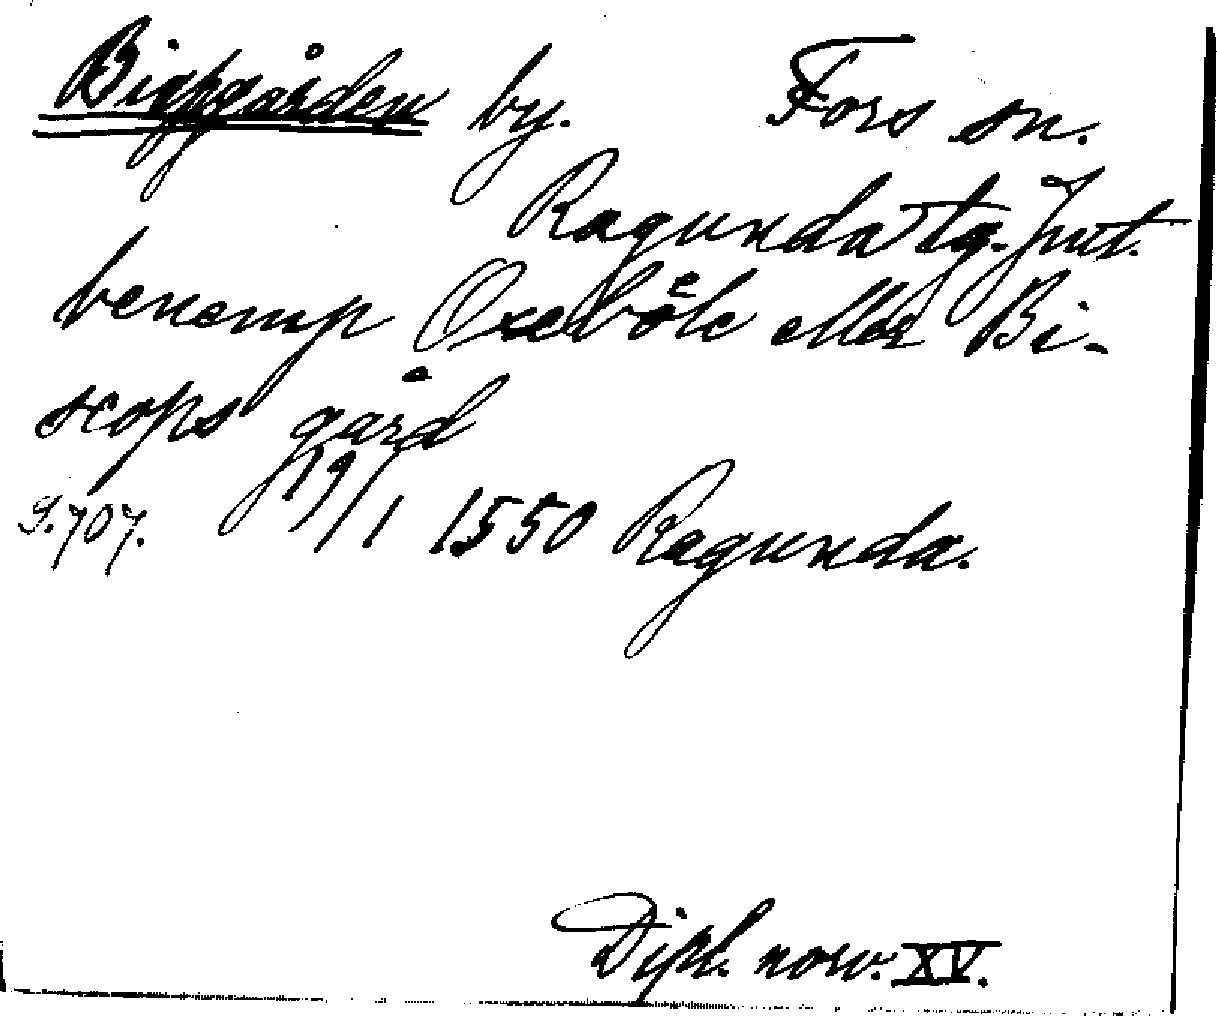 Bispgården by. Fors sn.
Ragunda tg. Jmt.
benemp Oxebo͑le eller Bi-
scops gård
S. 707. 19/1 1550 Ragunda.
Dipl. norv. XV.